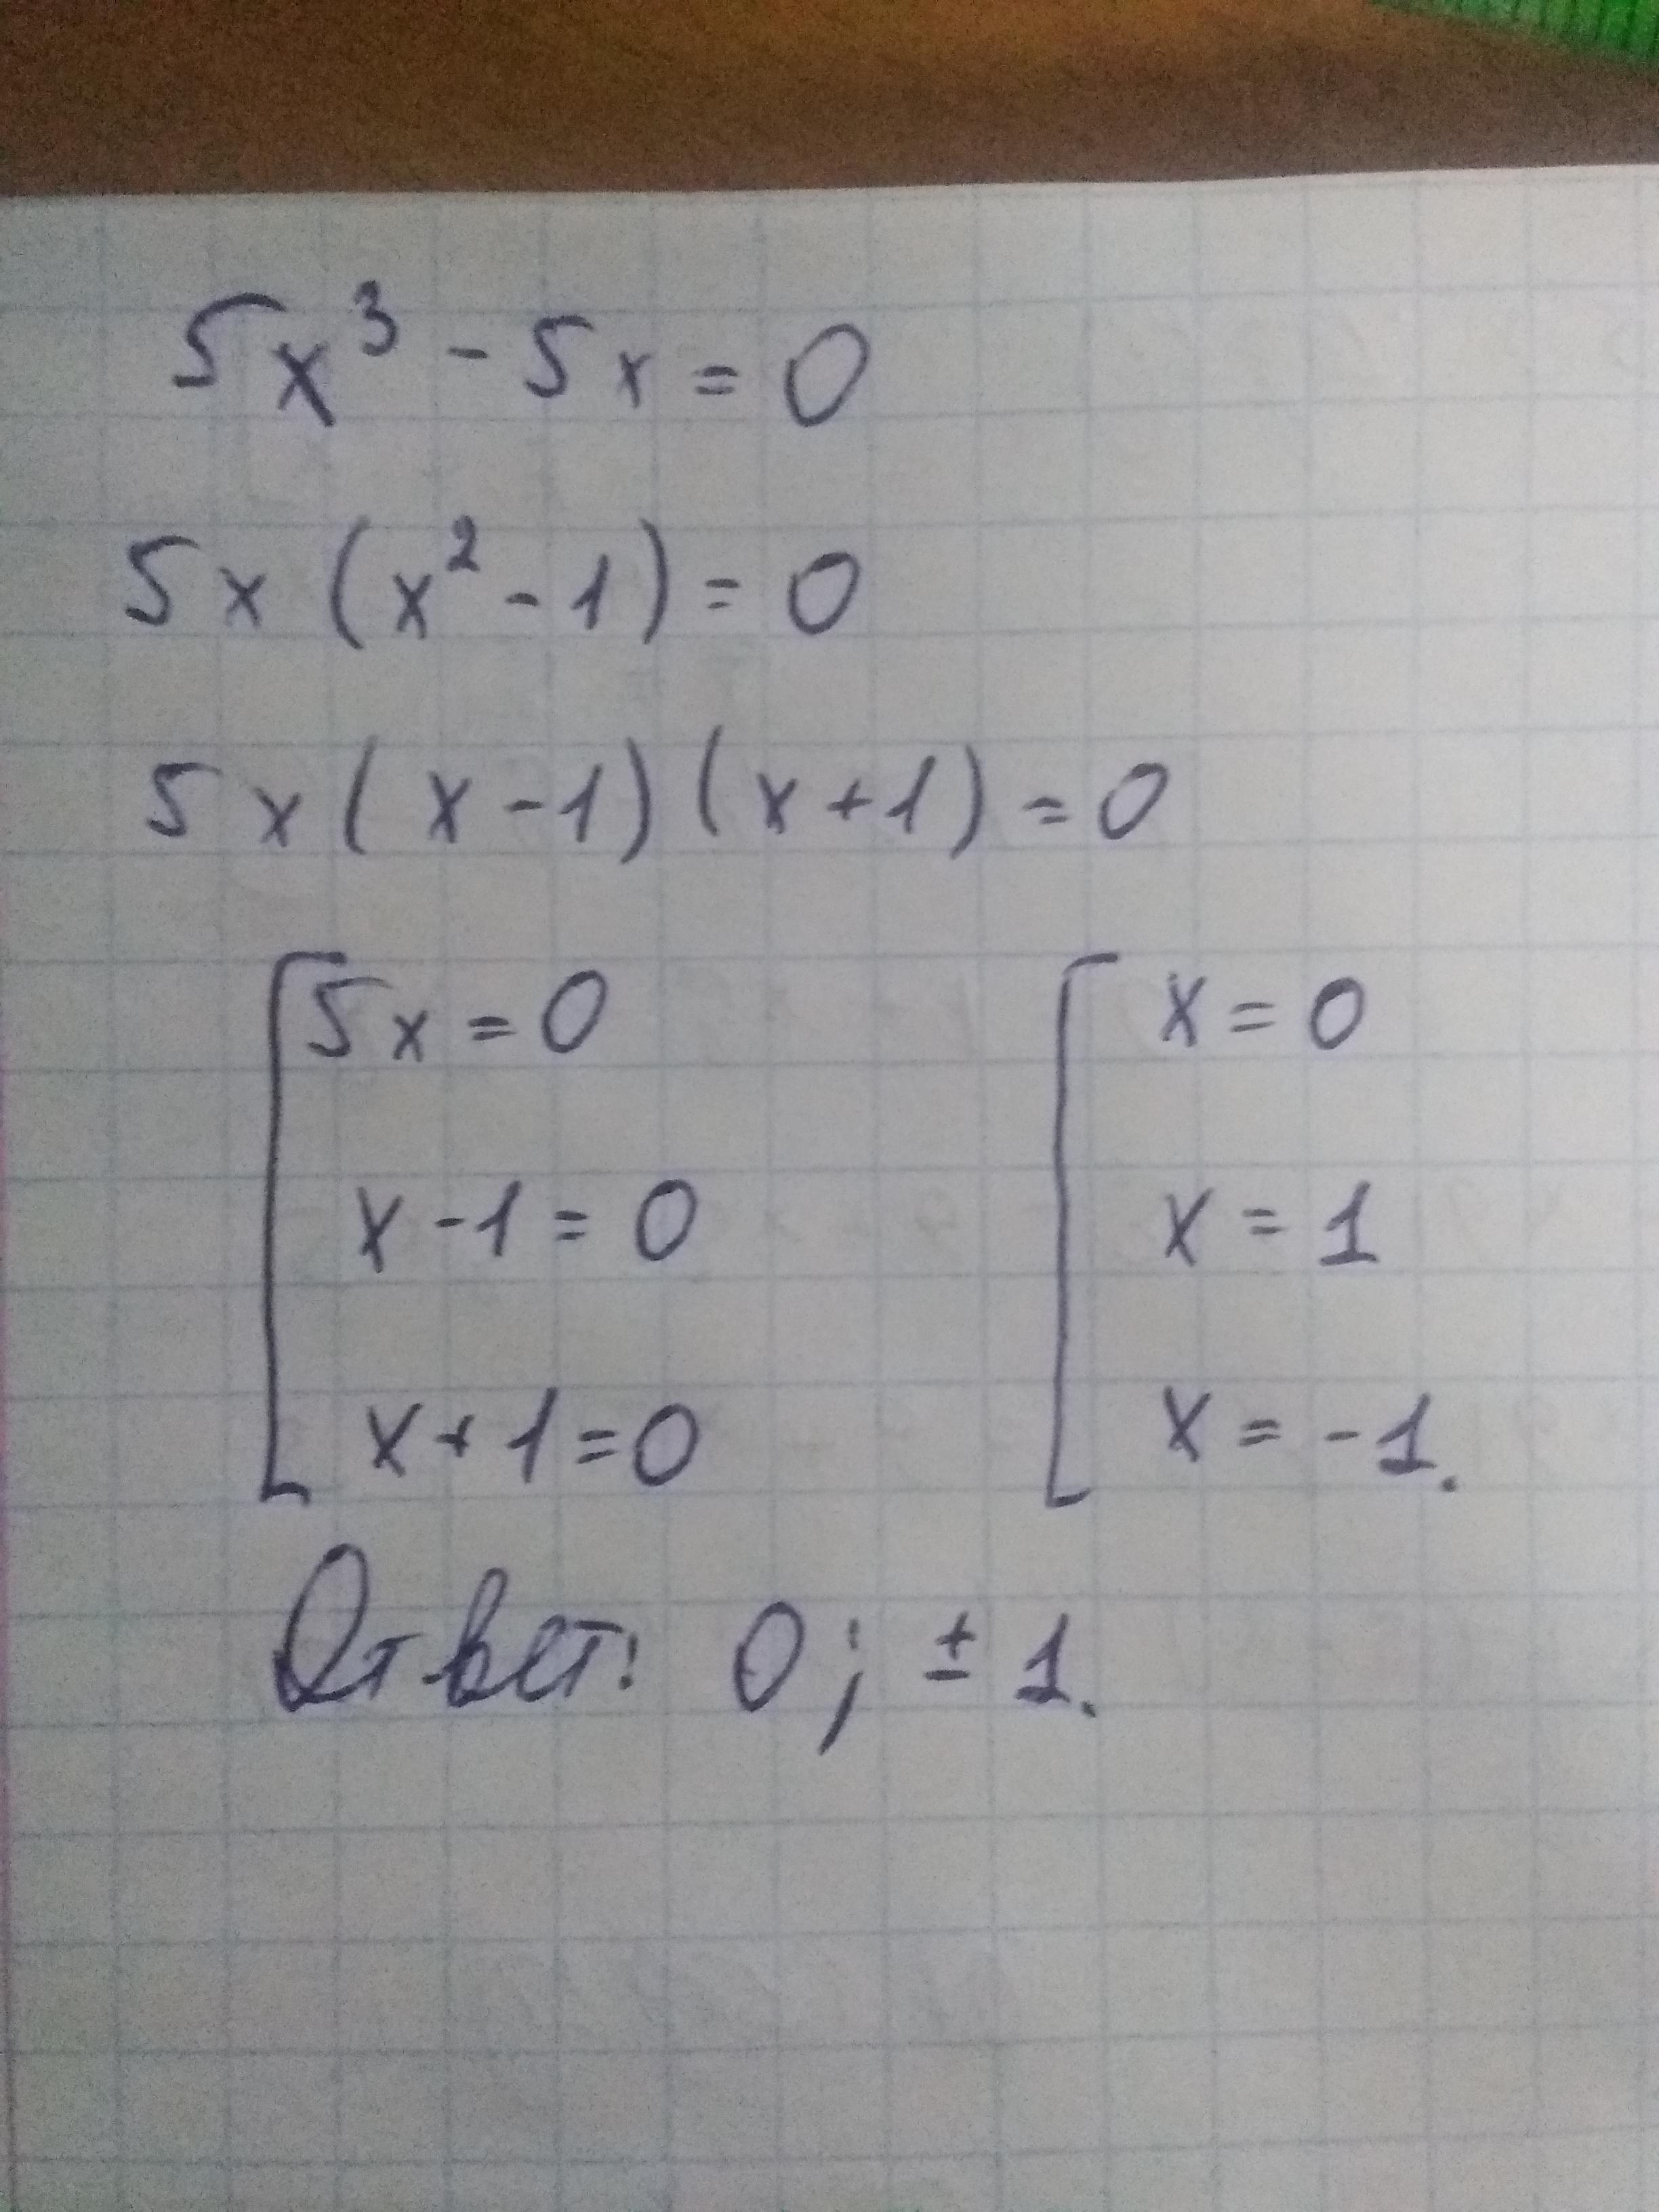 5x³ - 5x = 0
5x (x² - 1) = 0
5x (x - 1) (x + 1) = 0
[ 5x = 0 [ x = 0
x - 1 = 0 x = 1
x + 1 = 0 x = -1.
Ответ: 0; ± 1.